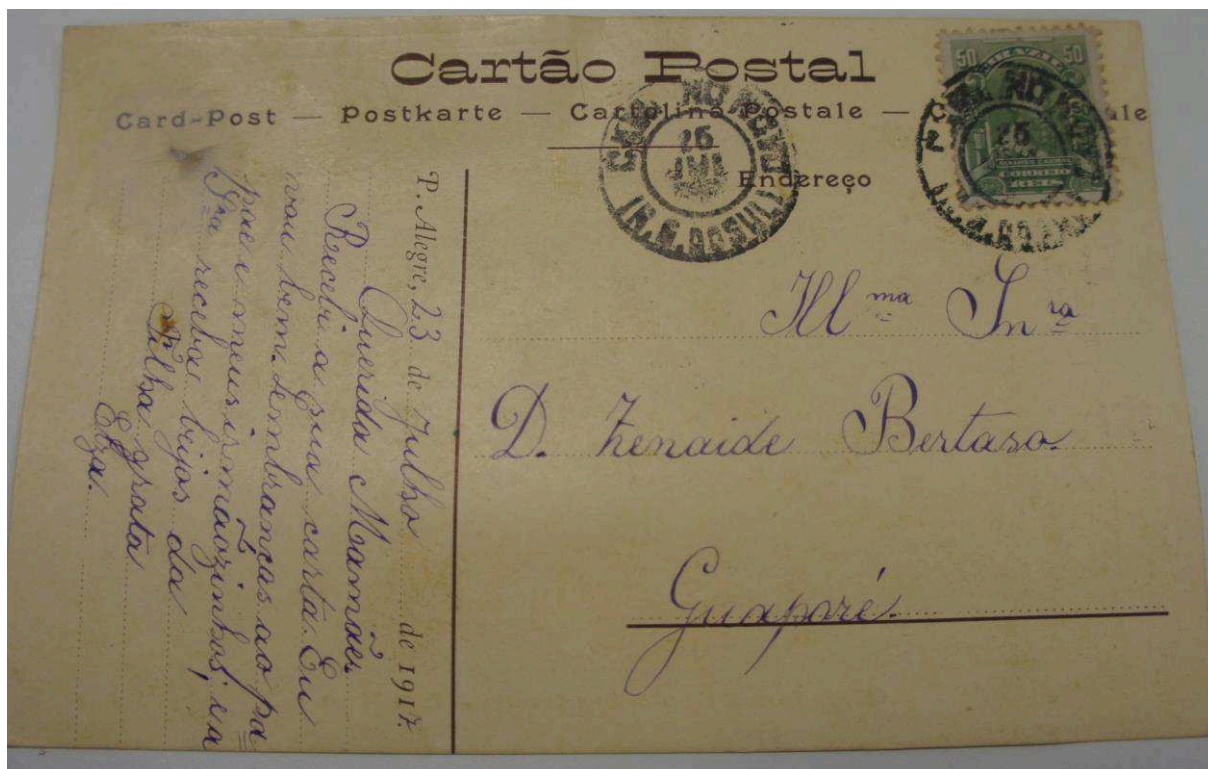 Cartão Postal
Card-Post — Postkarte — Cartolina Postale —
Endereço
50 BRAZIL 50
CORREIO
REIS
25
Ill ma Sn ra
D. Zenaide Bertaso.
Guaporé.
P. Alegre, 23 de Julho de 1917.
Querida Mamãe.
Recebi a sua carta. Eu
vou bem. Lembranças ao pa
pae e meus irmãozinhos, e a
Sra receba beijos da
Filha grata
Elza.